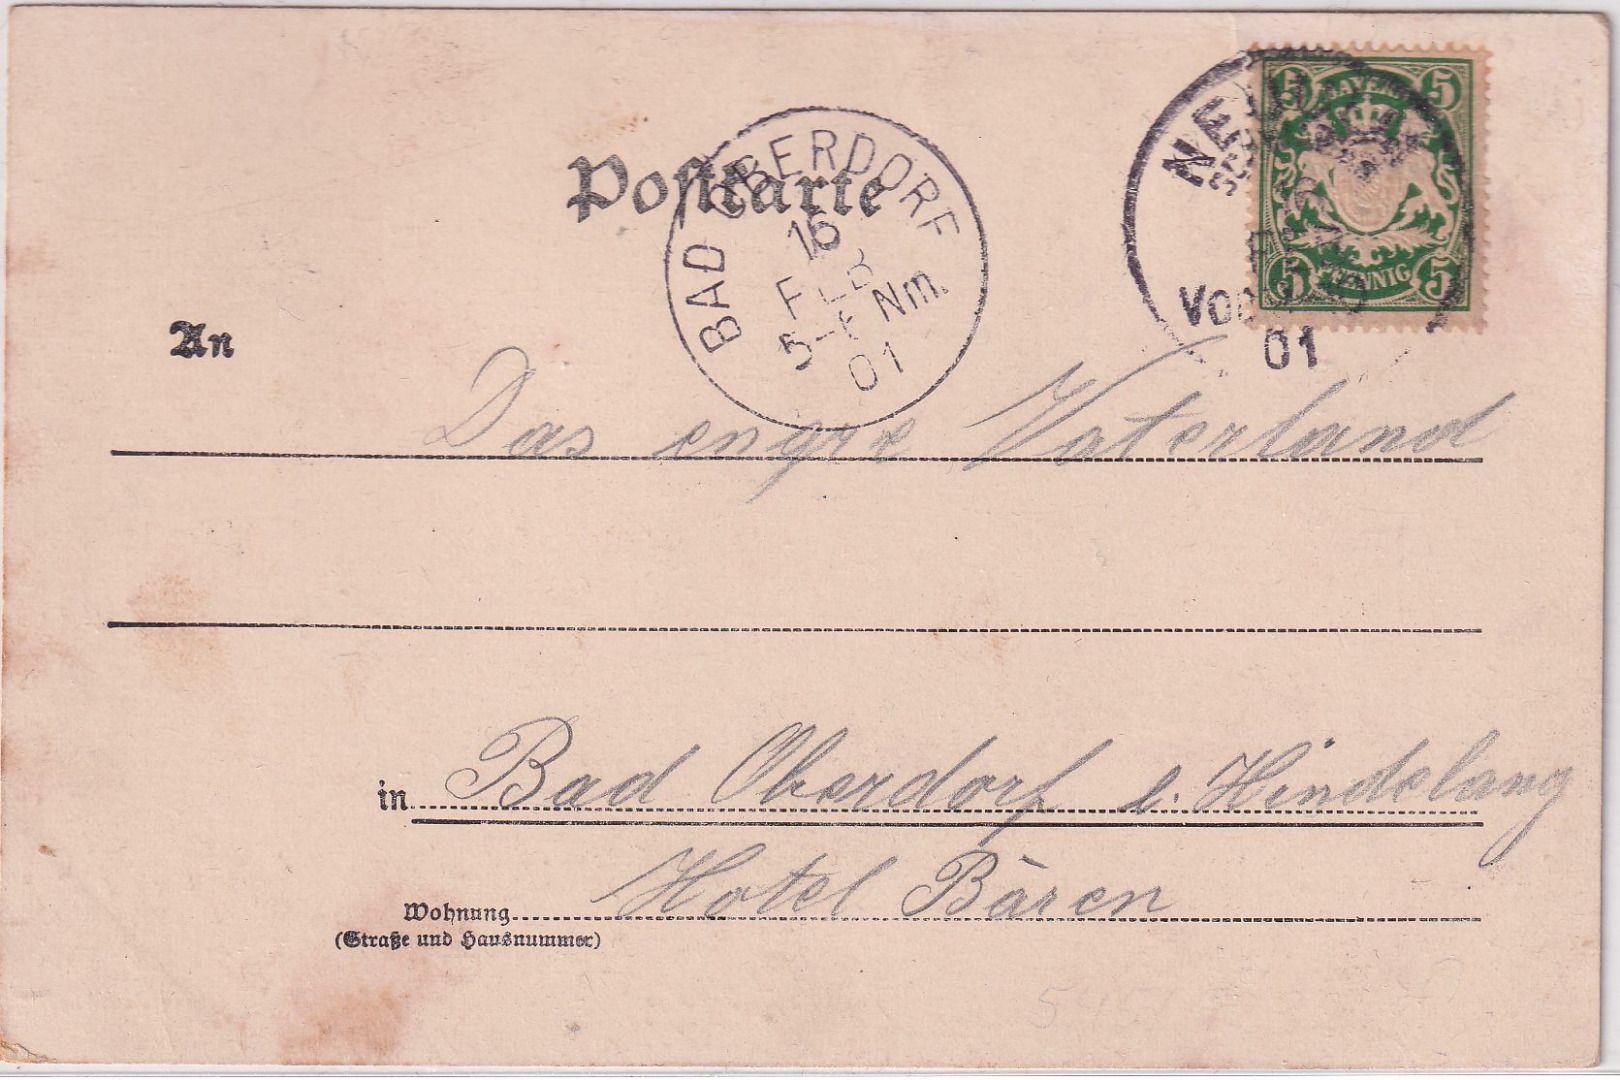 Postkarte
BAD OBERDORF
16
FEB
5-6 Nm.
01
5 BAYERN 5
5 PFENNIG 5
01
An
Das engre Vaterland
in Bad Oberdorf b. Hindelang
Wohnung Hotel Bären
(Straße und Hausnummer)